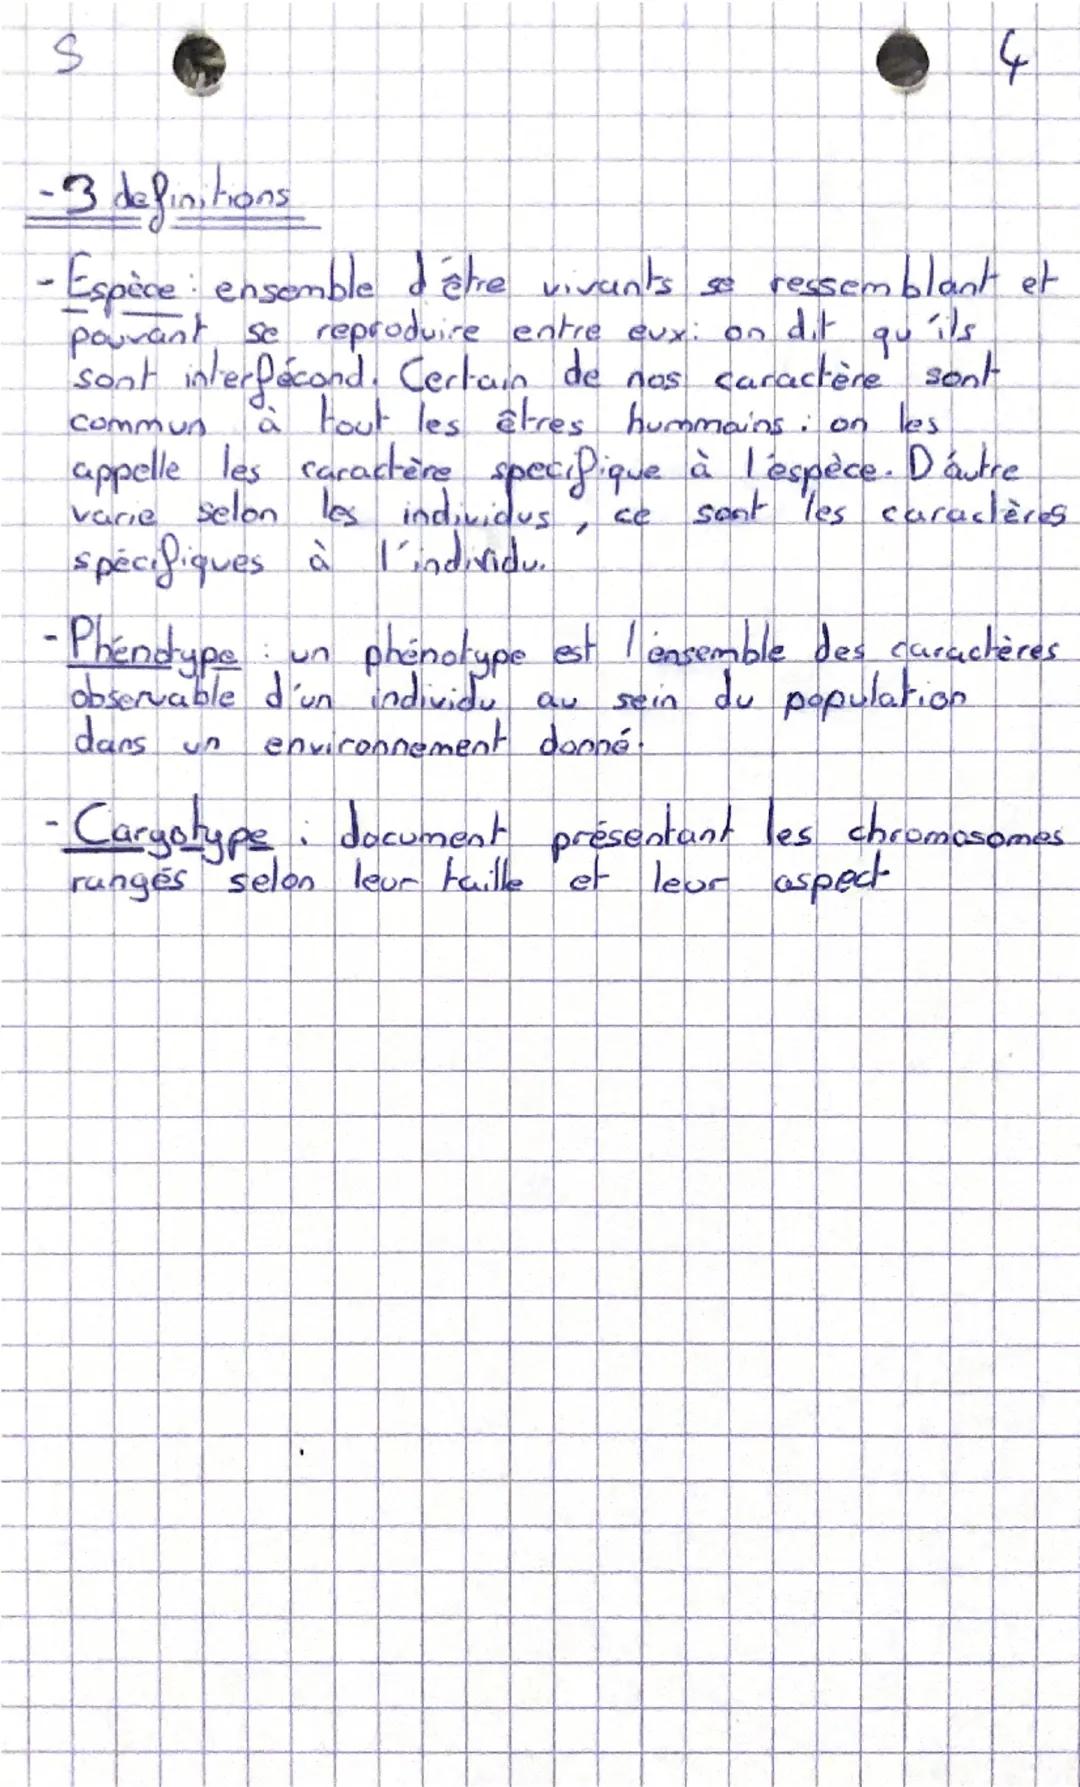 S 4
-3 definitions
- Espèce : ensemble d'être vivants se ressemblant et
pouvant se reproduire entre eux : on dit qu'ils
sont interfécond. Certain de nos caractère sont
commun à tout les êtres hummains : on les
appelle les caractère specifique à l'espèce. D'autre
varie selon les individus, ce sont les caractères
spécifiques à l'individu.
- Phénotype : un phénotype est l'ensemble des caractères
observable d'un individu au sein du population
dans un environnement donné.
- Caryotype : document présentant les chromosomes
rangés selon leur taille et leur aspect